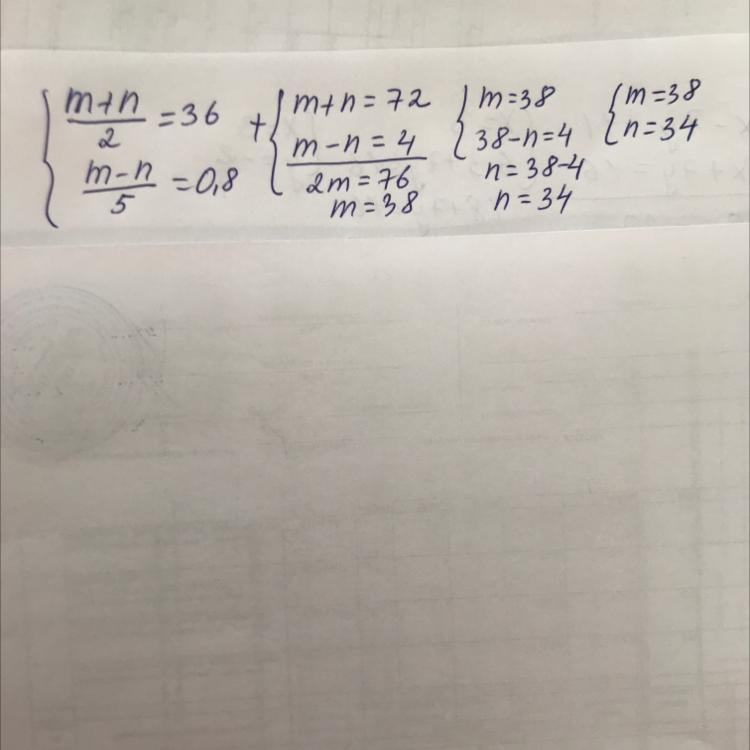 { (m+n)/2 = 36
(m-n)/5 = 0,8
+ { m+n = 72
m-n = 4
2m = 76
m = 38
{ m = 38
38-n = 4
n = 38-4
n = 34
{ m = 38
n = 34